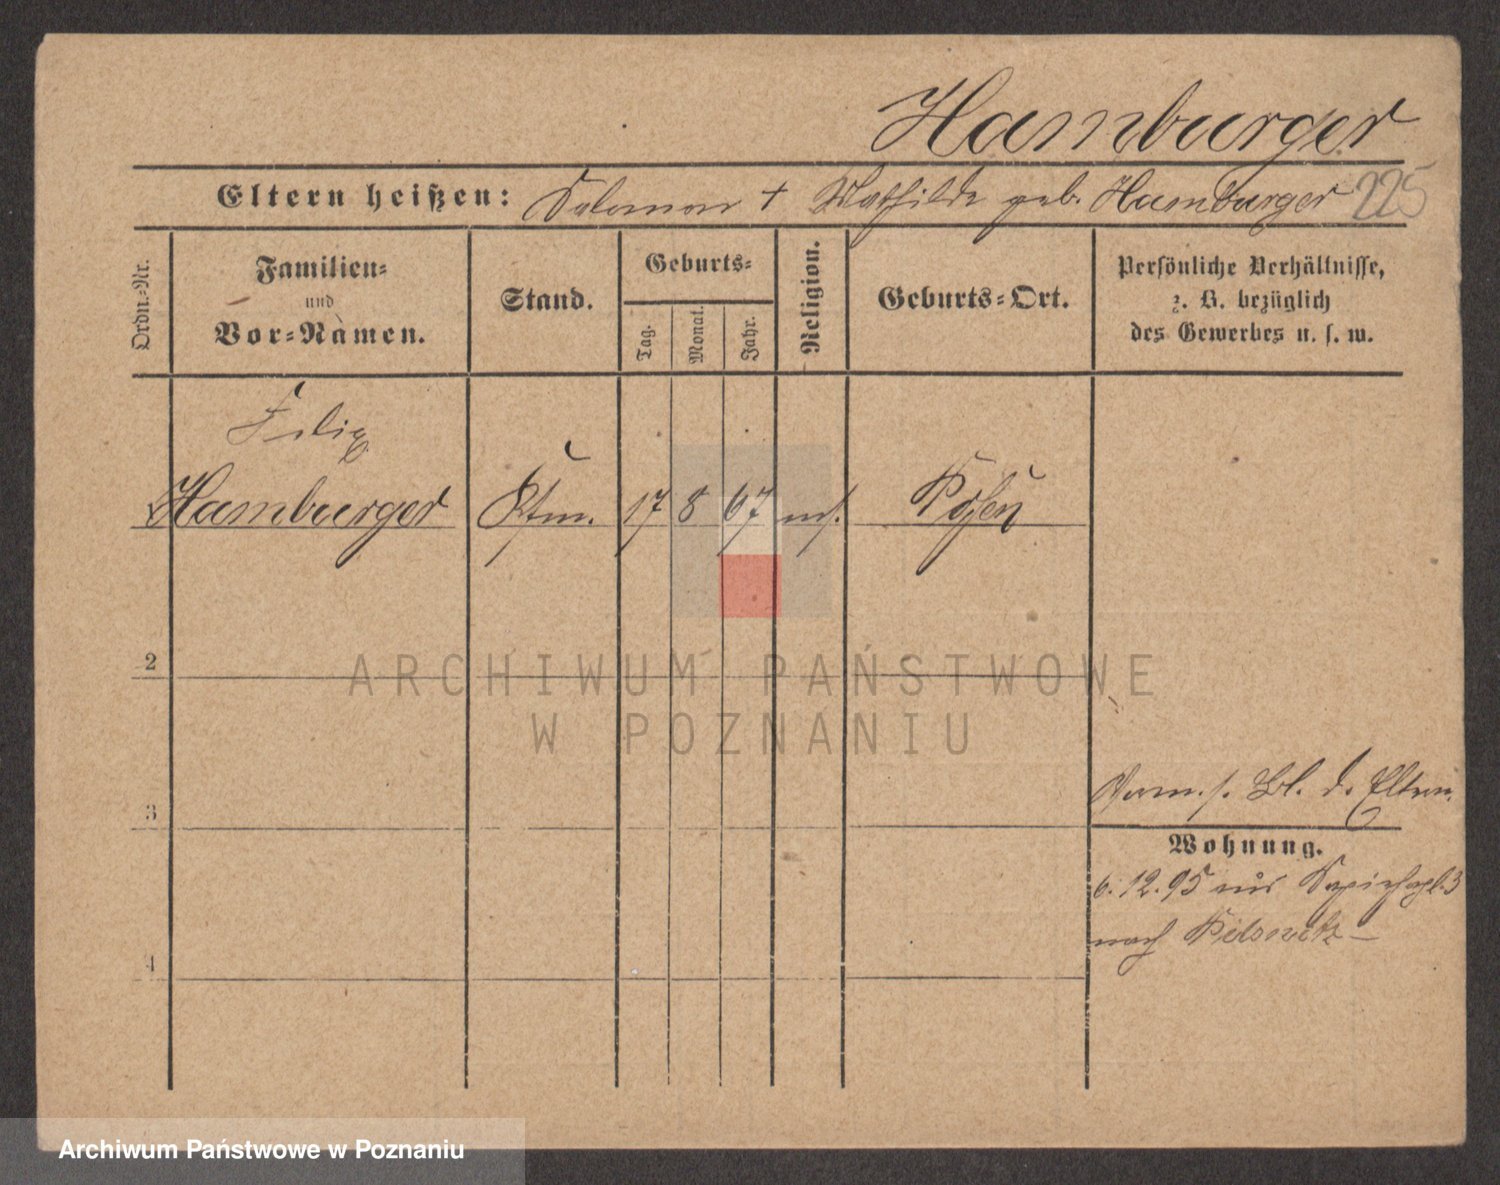 Hamburger
Eltern heißen: Salomon + Mathilde geb. Hamburger 225
Ordn.-Nr.
Familien-
und
Vor-Namen.
Stand.
Geburts-
Tag.
Monat.
Jahr.
Religion.
Geburts-Ort.
Persönliche Verhältnisse,
z. B. bezüglich
des Gewerbes u. s. w.
Felix
Hamburger Kfm. 17 8 67 ms. Posen
2
ARCHIWUM PAŃSTWOWE
W POZNANIU
3
Verm. s. Bl. d. Eltern.
Wohnung.
6. 12. 95 von Sapiehapl. 3
nach
4
Archiwum Państwowe w Poznaniu